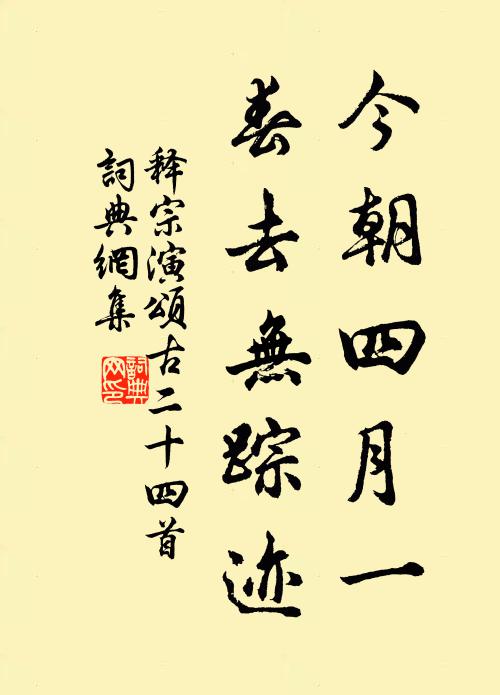 今朝四月一
春去無踪迹
释宗演頌古二十四首
詞典網集
詞典网印